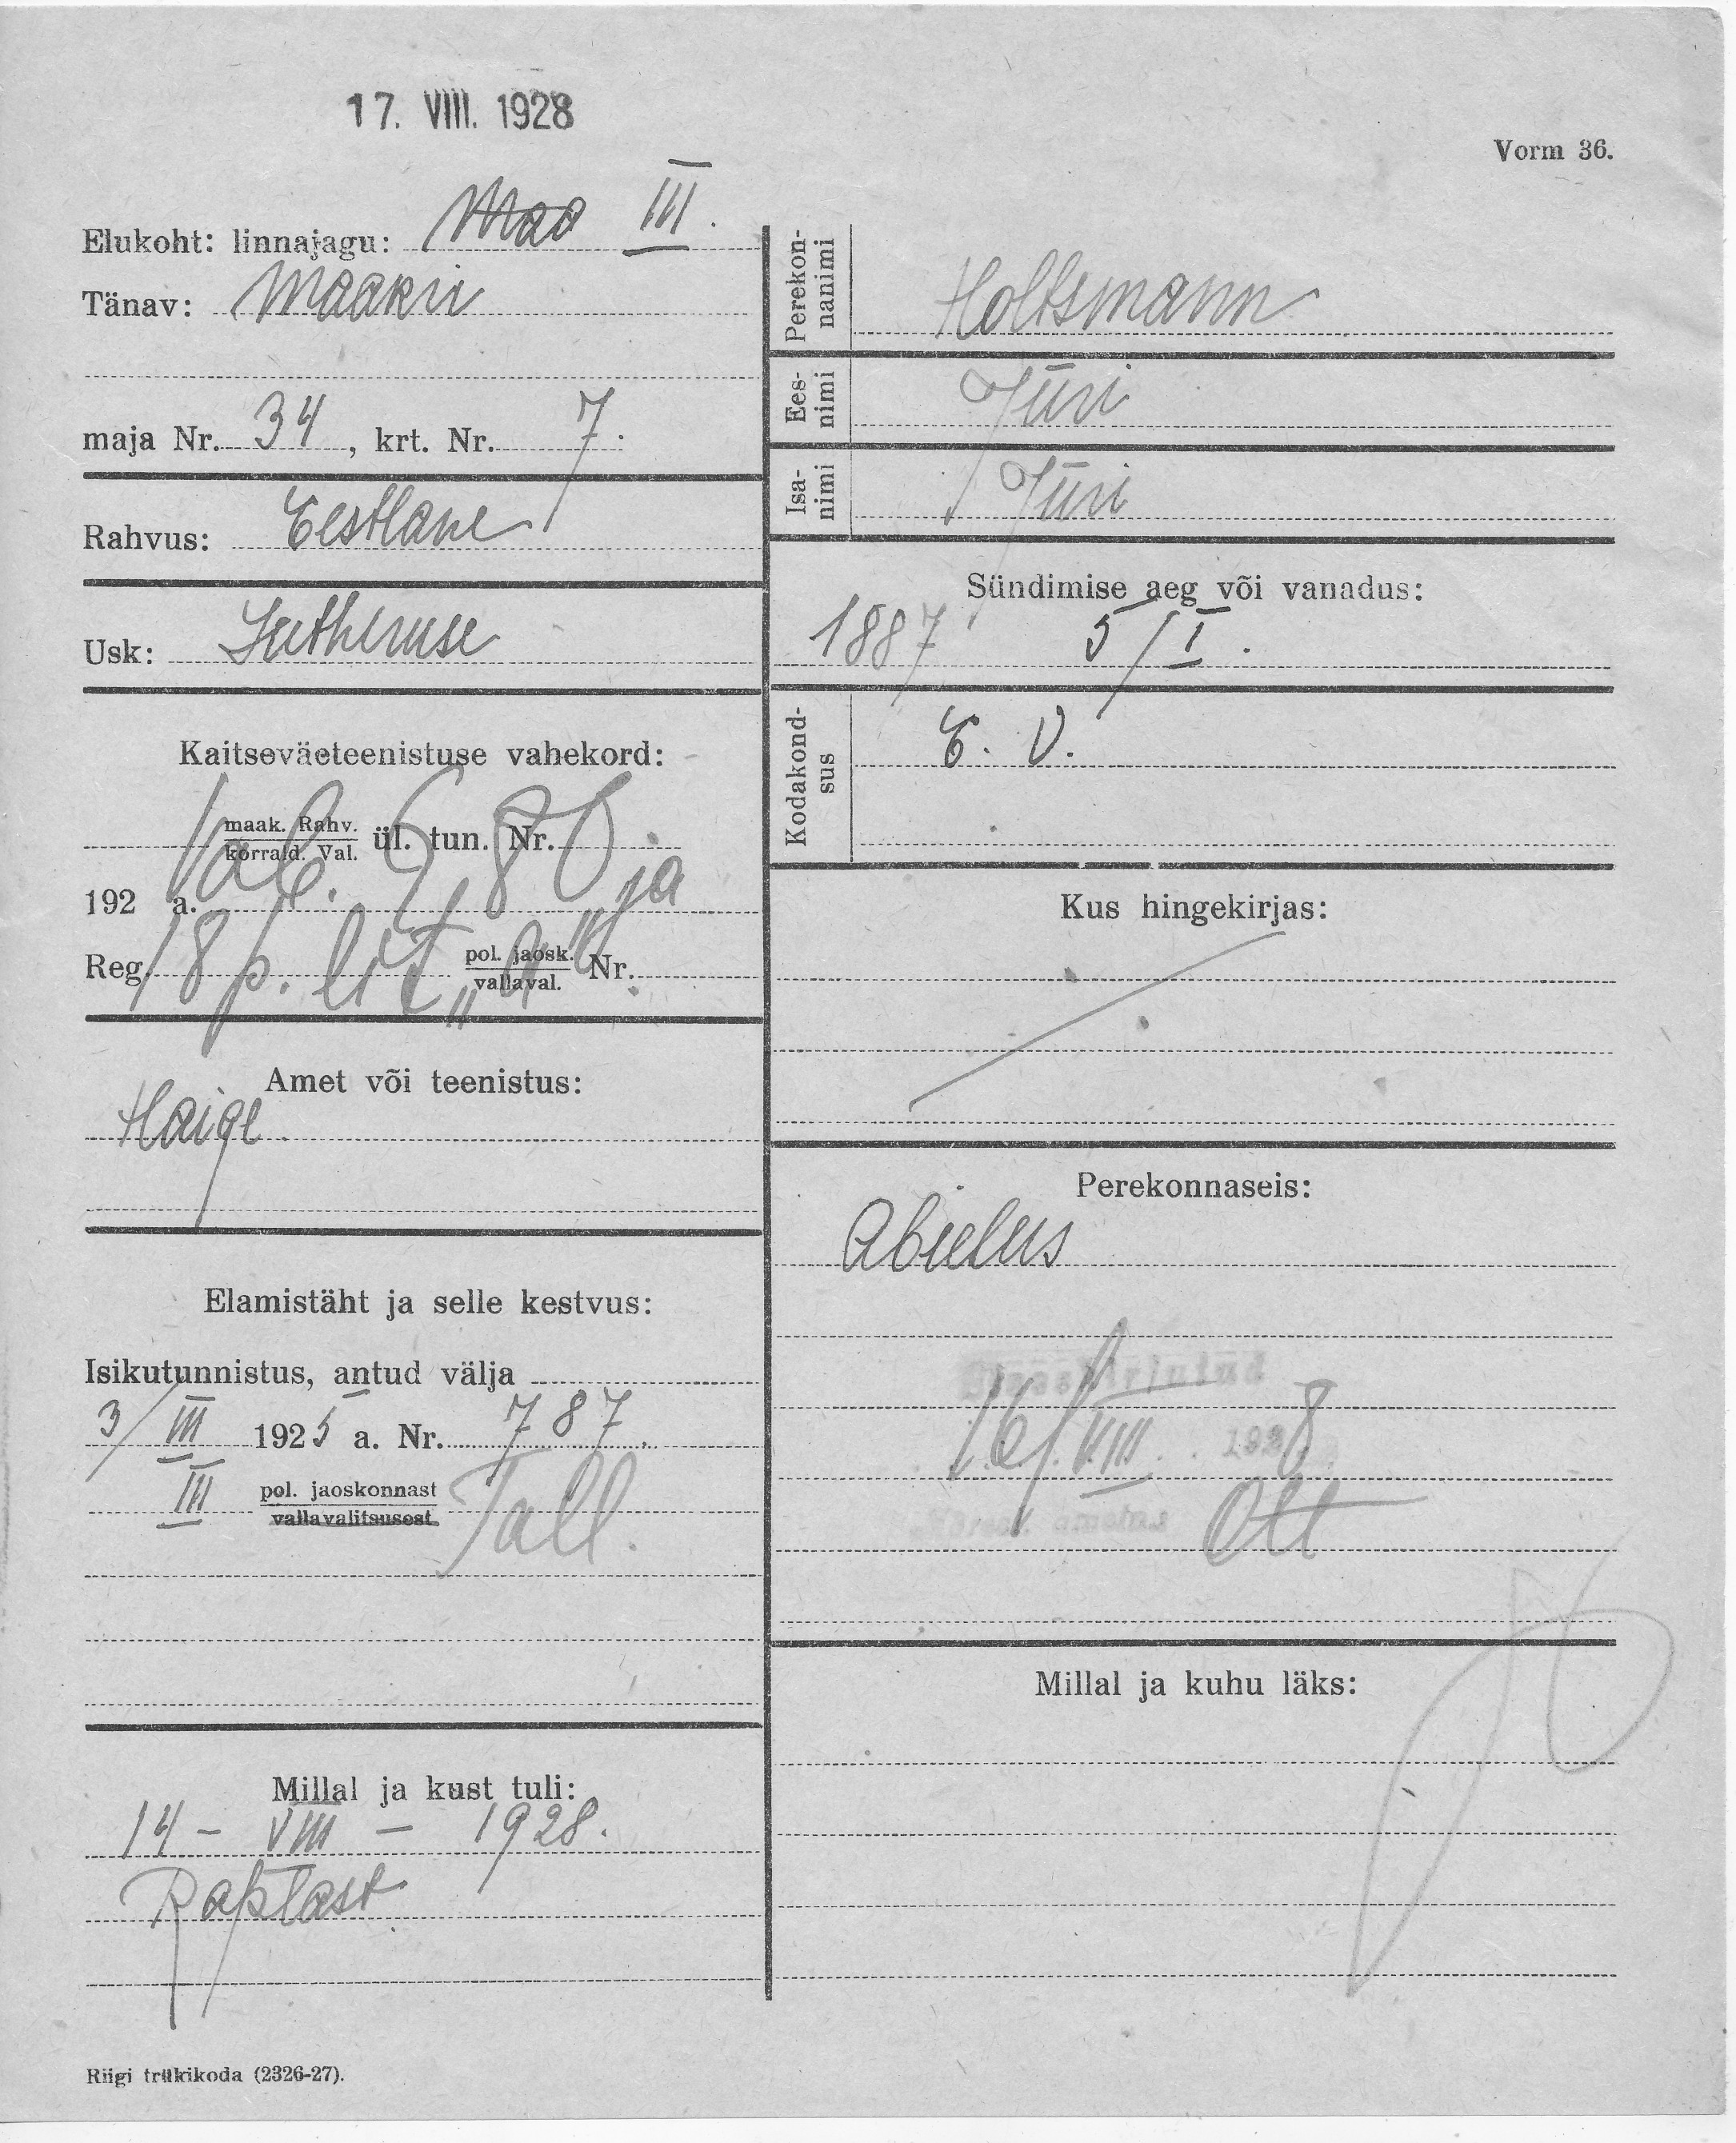 17. VIII. 1928
Vorm 36.
Elukoht: linnajagu: Maa III.
Tänav: Maakri
maja Nr. 34, krt. Nr. 7.
Rahvus: Eestlane
Usk: Lutheruse
Kaitseväeteenistuse vahekord:
maak. Rahv. ül. tun. Nr.
korrald. Val.
Vab. § 80 ja
192 a.
18 p. lit „a"
Reg. pol. jaosk. Nr.
vallaval.
Amet või teenistus:
Haige
Elamistäht ja selle kestvus:
Isikutunnistus, antud välja
3/III 1925 a. Nr. 787.
III pol. jaoskonnast Tall.
vallavalitsusest
Millal ja kust tuli:
14 – VIII – 1928.
Raplast
Riigi trükikoda (2326-27).
Perekonnanimi
Holtsmann
Eesnimi
Jüri
Isanimi
Jüri
Sündimise aeg või vanadus:
1887 5/I.
Kodakondsus
E. V.
Kus hingekirjas:
Perekonnaseis:
Abielus
Sissekirjutud
16/VIII. 1928
Ott
Millal ja kuhu läks: